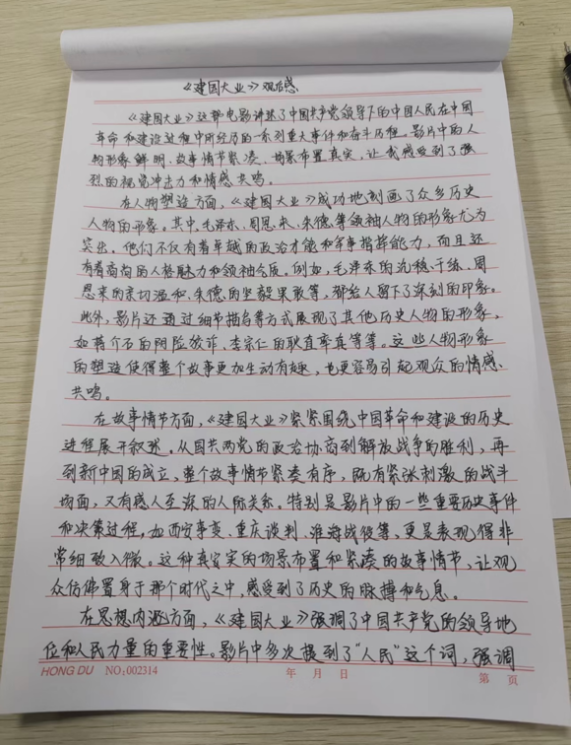 《建国大业》观后感
《建国大业》这部电影讲述了中国共产党领导下的中国人民在中国
革命和建设过程中所经历的一系列重大事件和奋斗历程。影片中的人
物形象鲜明、故事情节紧凑、场景布置真实,让我感受到了强
烈的视觉冲击力和情感共鸣。
在人物塑造方面,《建国大业》成功地刻画了众多历史
人物的形象。其中,毛泽东、周恩来、朱德等领袖人物的形象尤为
突出。他们不仅有着卓越的政治才能和军事指挥能力,而且还
有着高尚的人格魅力和领袖气质。例如,毛泽东的沉稳、干练、周
恩来的亲切温和、朱德的坚毅果敢等,都给人留下了深刻的印象。
此外,影片还通过细节描写等方式展现了其他历史人物的形象,
如蒋介石的阴险狡诈、李宗仁的耿直率真等等。这些人物形象
的塑造使得整个故事更加生动有趣,也更容易引起观众的情感
共鸣。
在故事情节方面,《建国大业》紧紧围绕中国革命和建设的历史
进程展开叙述。从国共两党的政治协商到解放战争的胜利,再
到新中国的成立,整个故事情节紧凑有序,既有紧张刺激的战斗
场面,又有感人至深的人际关系。特别是影片中的一些重要历史事件
和决策过程,如西安事变、重庆谈判、淮海战役等,更是表现得非
常细致入微。这种真实的场景布置和紧凑的故事情节,让观
众仿佛置身于那个时代之中,感受到了历史的脉搏和气息。
在思想内涵方面,《建国大业》强调了中国共产党的领导地
位和人民力量的重要性。影片中多次提到了"人民"这个词,强调
HONG DU NO:002314 年 月 日 第 页